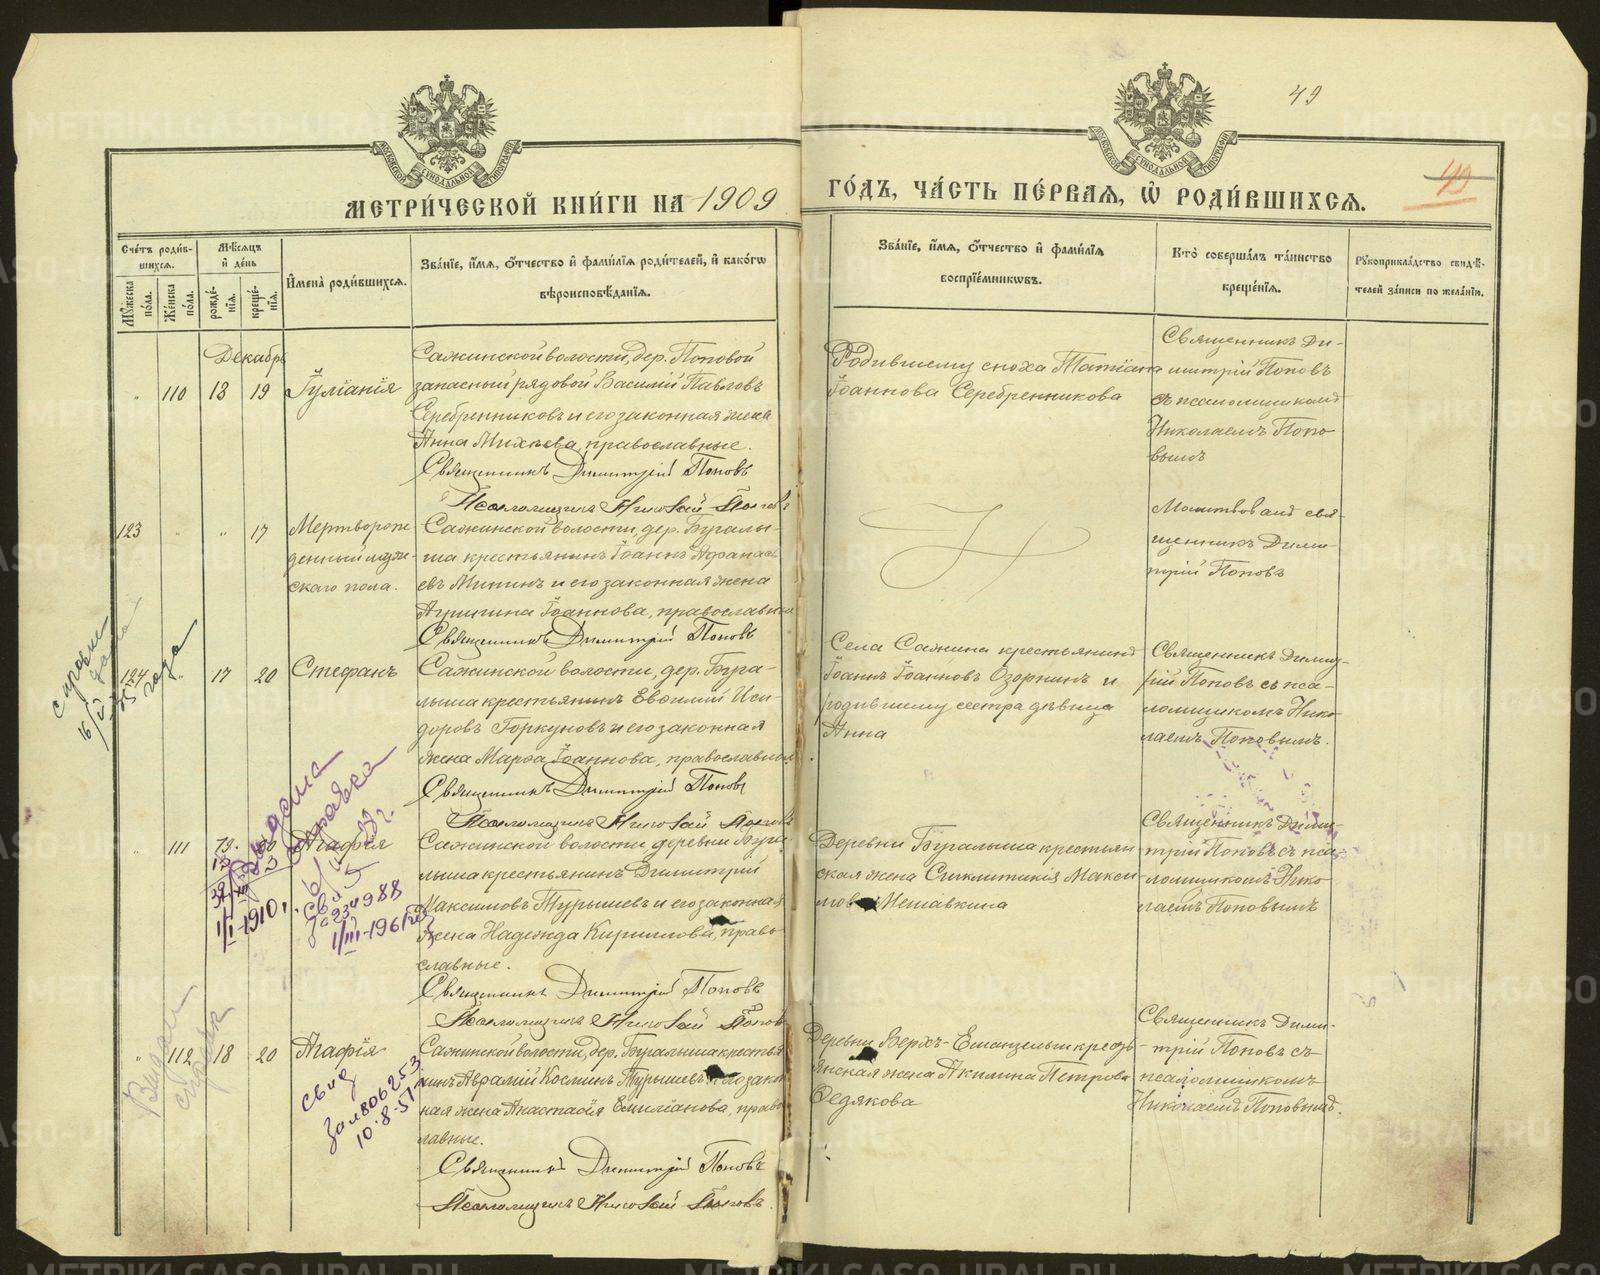 49
49
МЕТРИ́ЧЕСКОЙ КНИ́ГИ НА 1909 ГО́ДЪ, ЧА́СТЬ ПЕ́РВАЯ, Ѡ҆ РОДИ́ВШИХСЯ.
Сче́тъ роди́в-
шихся.
Мꙋ́жеска по́ла.
Же́нска по́ла.
Мѣ́сяцъ
и҆ де́нь
рожде́-
нїя.
креще́-
нїя.
И҆мена̀ роди́вшихся.
Зва́нїе, и҆́мя, ѻ҆́тчество и҆ фами́лїя роди́телей, и҆ како́гѡ
вѣроисповѣ́данїя.
Зва́нїе, и҆́мя, ѻ҆́тчество и҆ фами́лїя
воспрїе́мникѡвъ.
Кто̀ соверша́лъ та́инство
креще́нїя.
Рꙋкоприкла́дство свидѣ́-
телей за́писи по жела́нїю.
Декабрь
" 110 13 19 Іулїанїя
Сажинской волости, дер. Поповой
запасный рядовой Василій Павловъ
Серебренниковъ и его законная жена
Анна Михѣева, православные.
Священникъ Димитрій Поповъ
Псаломщикъ Николай Поповъ
Родившему сноха Татіана
Іоаннова Серебренникова
Священникъ Ди-
митрій Поповъ
съ псаломщикомъ
Николаемъ Попо-
вымъ
123 " " 17 Мертворож-
денный муже-
скаго пола.
Сажинской волости, дер. Бугалы-
ша крестьянинъ Іоаннъ Афанась-
евъ Мининъ и его законная жена
Агрипина Іоаннова, православные
Священникъ Димитрій Поповъ
Молитвовалъ свя-
щенникъ Дими-
трій Поповъ
124 " 17 20 Стефанъ
Сажинской волости, дер. Буга-
лыша крестьянинъ Евѳимій Иси-
доровъ Горкуновъ и его законная
жена Марѳа Іоаннова, православные
Священникъ Димитрій Поповъ
Псаломщикъ Николай Поповъ
Села Сажина крестьянинъ
Іоаннъ Іоанновъ Озорнинъ и
родившему сестра дѣвица
Анна
Священникъ Димит-
рій Поповъ съ пса-
ломщикомъ Нико-
лаемъ Поповымъ.
справки
16/V 75 года
" 111 20 Агафія
Сажинской волости, деревни Буга-
лыша крестьянинъ Димитрій
Максимовъ Турышевъ и его законная
жена Надежда Кириллова, право-
славные.
Священникъ Димитрій Поповъ
Псаломщикъ Николай Поповъ
Деревни Бугалыша крестьян-
ская жена Синклитикія Макси-
мова Мешавкина
Священникъ Дими-
трій Поповъ съ пса-
ломщикомъ Нико-
лаемъ Поповымъ
справка
1/I-1910г.
1/III-1961
" 112 18 20 Агафія
Сажинской волости, дер. Бугалыша крестья-
нинъ Аврамій Косминъ Турышевъ и его закон-
ная жена Анастасія Емиліанова, право-
славные.
Священникъ Димитрій Поповъ
Псаломщикъ Николай Поповъ.
Деревни Верхъ-Ешанзельги кресть-
янская жена Акилина Петрова
Ѳедякова
Священникъ Дими-
трій Поповъ съ
псаломщикомъ
Николаемъ Поповымъ.
Свид
10-8-51г
METRIKI.GASO-URAL.RU